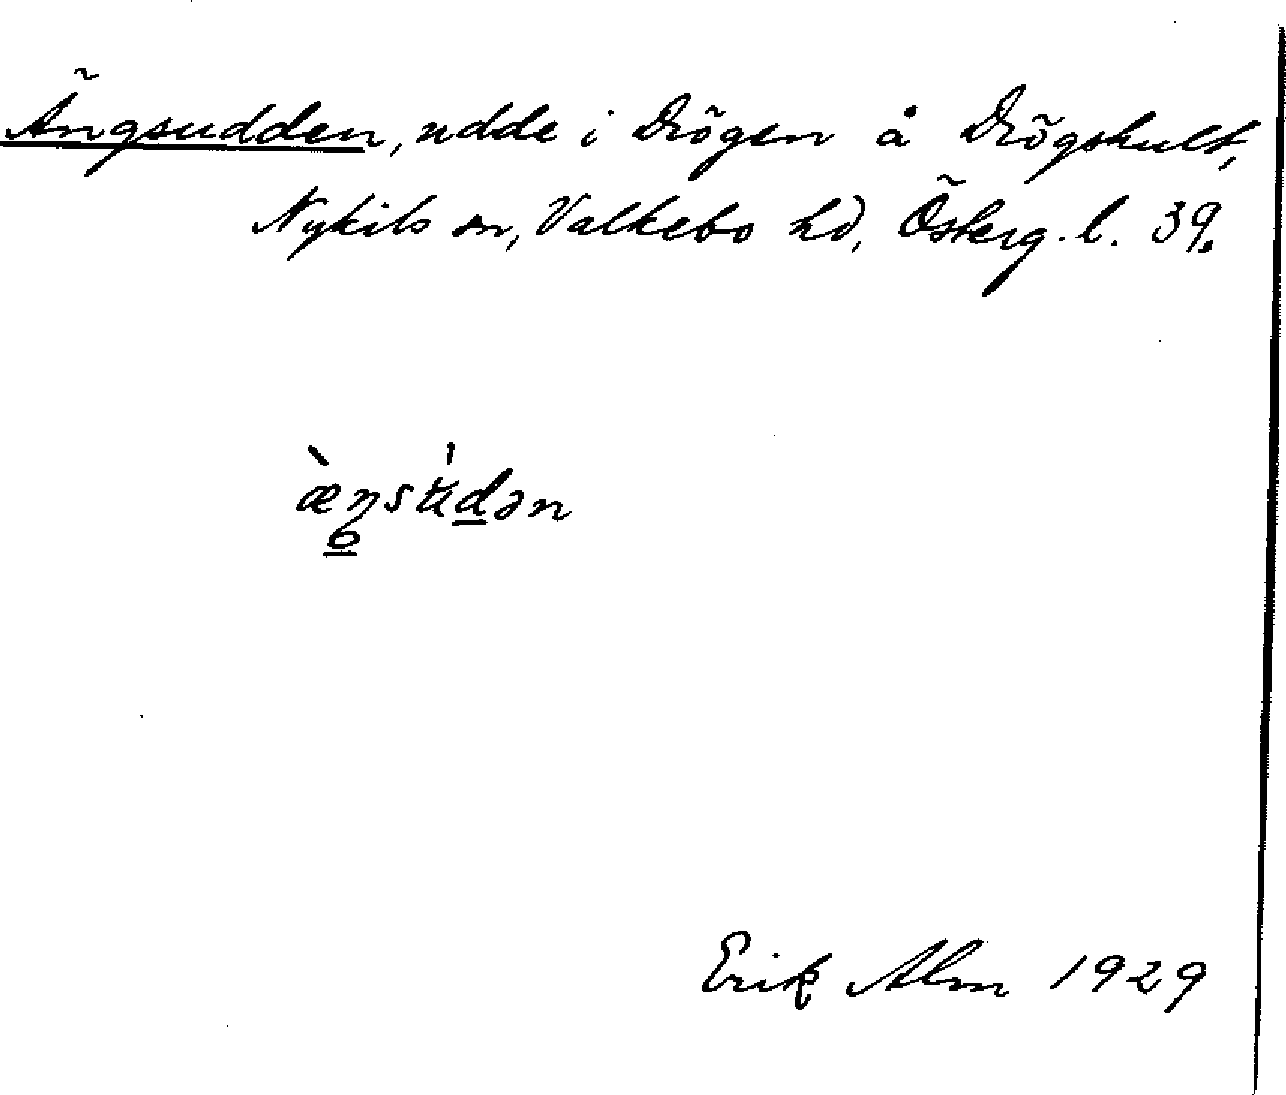 Ängsudden, udde i Drögen å Drögshult,
Nykils sn, Valkebo hd, Österg. l. 39.
æ̀ŋsu̍dən
Erik Alm 1929